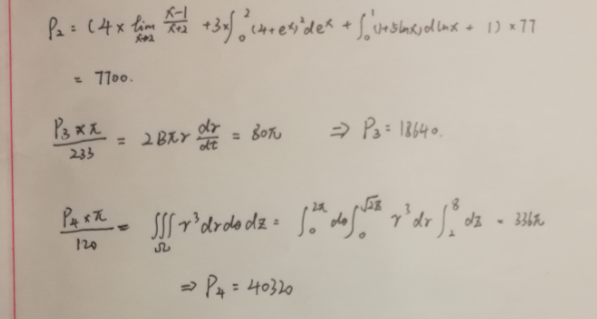 P₂ = (4 × lim_{x→2} (x-1)/(x+2) + 3×∫₀² (4+eˣ)² deˣ + ∫₀¹ (1+5lnx) dlnx + 1) × 77
= 7700.
(P₃×π)/233 = 2Bπr dr/dt = 80π ⇒ P₃ = 18640.
(P₄×π)/120 = ∭_Ω r³ dr dθ dz = ∫₀^{2π} dθ ∫₀^{√2z} r³ dr ∫₂⁸ dz = 336π
⇒ P₄ = 40320